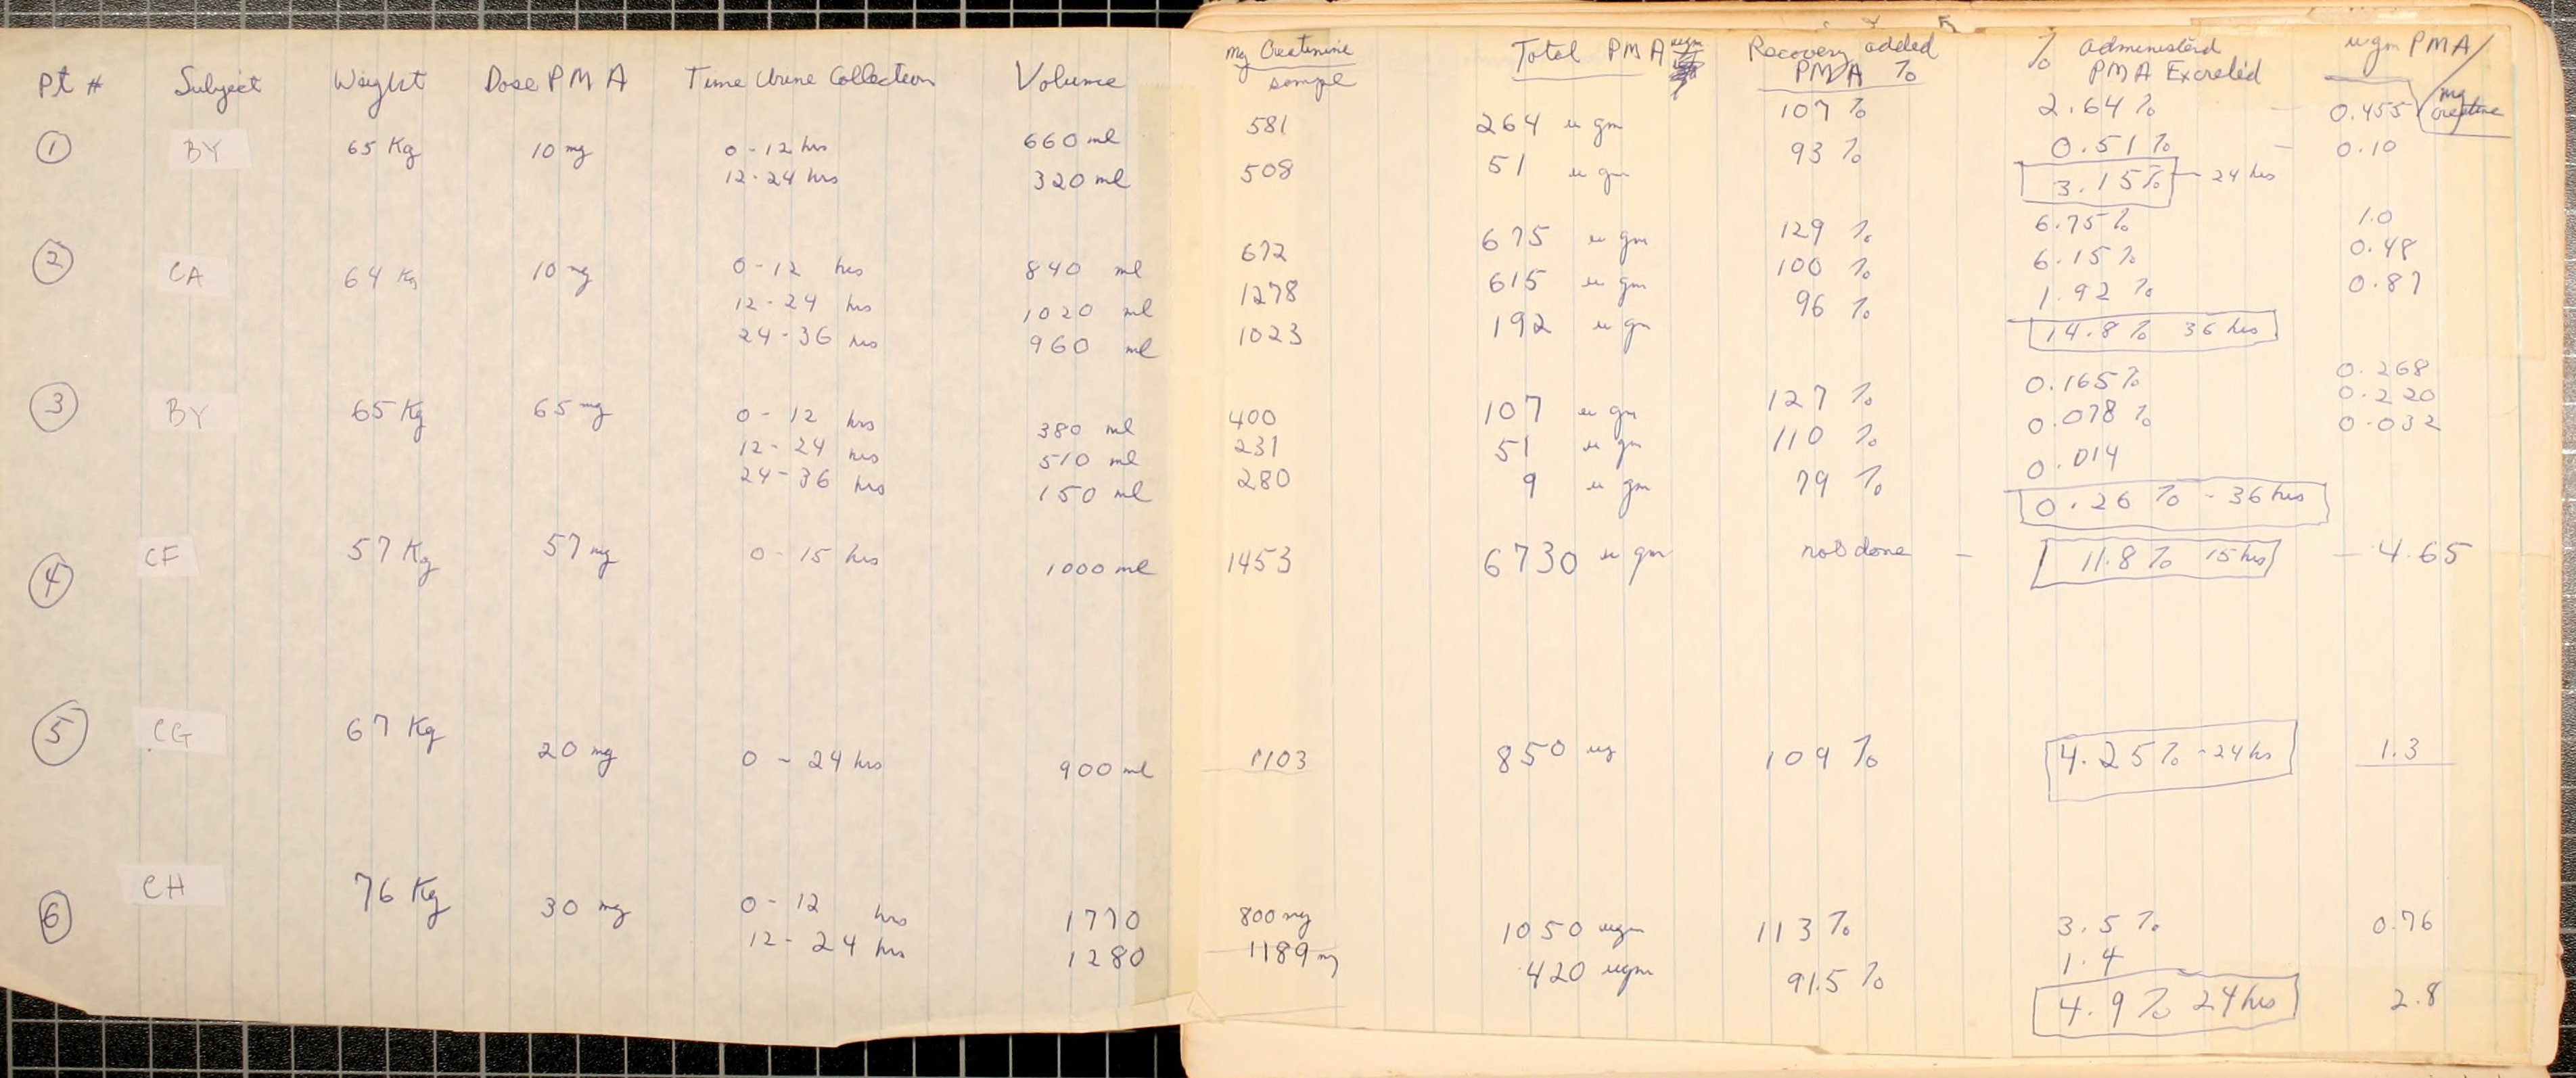 Pt # Subject Weight Dose PMA Time Urine Collection Volume mg Creatinine / sample Total PMA ugm Recovery added PMA % % administerd PMA Excreted ugm PMA / mg creatine
① BY 65 Kg 10 mg 0-12 hrs 660 ml 581 264 u gm 107 % 2.64 % 0.455
12-24 hrs 320 ml 508 51 u gm 93 % 0.51 % 0.10
3.15% - 24 hrs
② CA 64 Kg 10 mg 0-12 hrs 840 ml 672 675 u gm 129 % 6.75 % 1.0
12-24 hrs 1020 ml 1278 615 u gm 100 % 6.15 % 0.48
24-36 hrs 960 ml 1023 192 u gm 96 % 1.92 % 0.87
14.8 % 36 hrs
③ BY 65 Kg 65 mg 0-12 hrs 380 ml 400 107 u gm 127 % 0.165 % 0.268
12-24 hrs 510 ml 231 51 u gm 110 % 0.078 % 0.220
24-36 hrs 150 ml 280 9 u gm 79 % 0.014 0.032
0.26 % - 36 hrs
④ CF 57 Kg 57 mg 0-15 hrs 1000 ml 1453 6730 u gm not done - 11.8 % 15 hrs - 4.65
⑤ CG 67 Kg 20 mg 0-24 hrs 900 ml 1103 850 ug 109 % 4.25 % - 24 hs 1.3
⑥ CH 76 Kg 30 mg 0-12 hrs 1770 800 mg 1050 ugm 113 % 3.5 % 0.76
12-24 hrs 1280 1189 mg 420 ugm 91.5 % 1.4 2.8
4.9 % 24 hrs